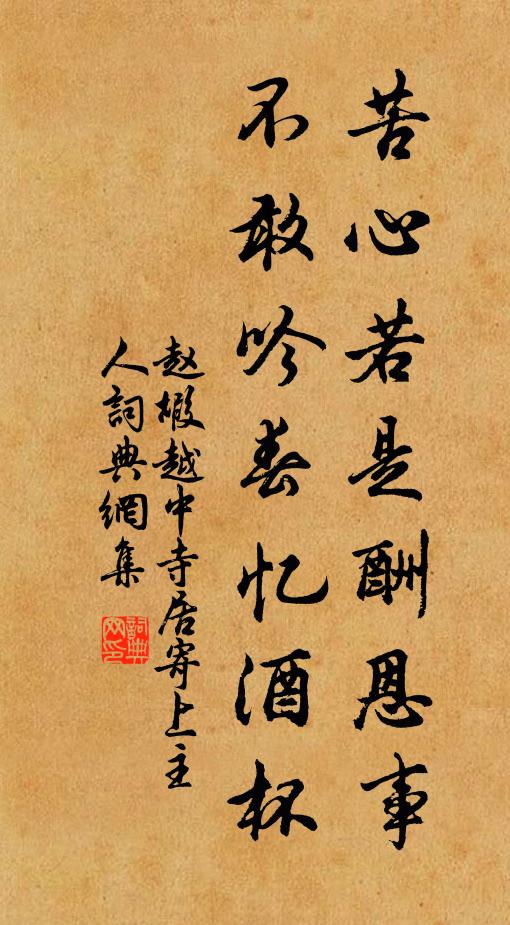 苦心若是酬恩事
不敢吟春忆酒杯
赵嘏越中寺居寄上主
人詞典網集
詞典网印